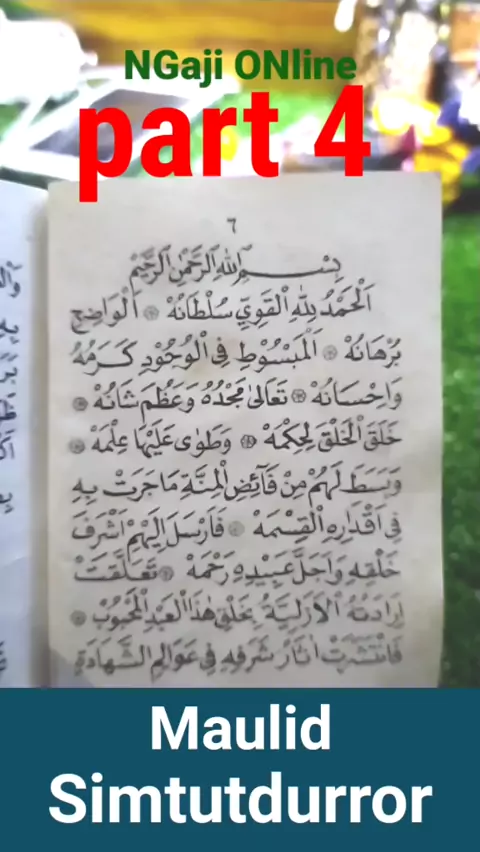 NGaji ONline
part 4
٦
بِسْمِ اللهِ الرَّحْمٰنِ الرَّحِيْمِ
اَلْحَمْدُ لِلّٰهِ الْقَوِيِّ سُلْطَانُهْ ۞ اَلْوَاضِحِ
بُرْهَانُهْ ۞ اَلْمَبْسُوْطِ فِى الْوُجُوْدِ كَرَمُهُ
وَاِحْسَانُهْ ۞ تَعَالىٰ مَجْدُهُ وَعَظُمَ شَانُهْ ۞
خَلَقَ الْخَلْقَ لِحِكْمَهْ ۞ وَطَوٰى عَلَيْهَا عِلْمَهْ ۞
وَبَسَطَ لَهُمْ مِنْ فَآئِضِ الْمِنَّةِ مَاجَرَتْ بِهِ
فِى اَقْدَارِهِ الْقِسْمَهْ ۞ فَاَرْسَلَ اِلَيْهِمْ اَشْرَفَ
خَلْقِهِ وَاَجَلَّ عَبِيْدِهِ رَحْمَهْ ۞ تَعَلَّقَتْ
اِرَادَتُهُ الْاَزَلِيَّةُ بِخَلْقِ هٰذَا الْعَبْدِ الْمَحْبُوْبْ ۞
فَانْتَشَرَتْ اٰثَارُ شَرَفِهِ فِى عَوَالِمِ الشَّهَادَةِ
Maulid
Simtutdurror